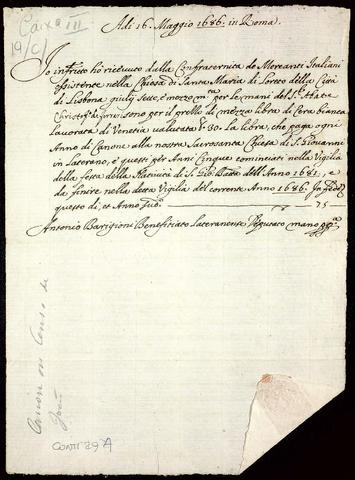 Caixa III
19/C/
Adi 16. Maggio 1686. in Roma.
Io infrítto hò riceuuto dalla Confraternita de Mercanti Italiani
esistente nella Chiesa di Santa Maria di Loreto della Città
di Lisbona giulij sette, è mezzo mta per le mani del S.r Abbate
sono per il prezzo di mezza libra di Cera bianca
lauorata di Venetia ualutata b. 30. La libra, che paga ogni
Anno di Canone alla nostra Sacrosanta Chiesa di S. Giouanni
in Laterano, è questi per Anni Cinque cominciati nella Vigilia
della festa della Natiuità di S. Gio: Batta dell'Anno 1681, e
da finire nella detta Vigilia del corrente Anno 1686. In fede
questo dì, et Anno sud.o 75
Antonio Barigioni Benefitiato Lateranense Deputato mano pp.a
CONTI 297